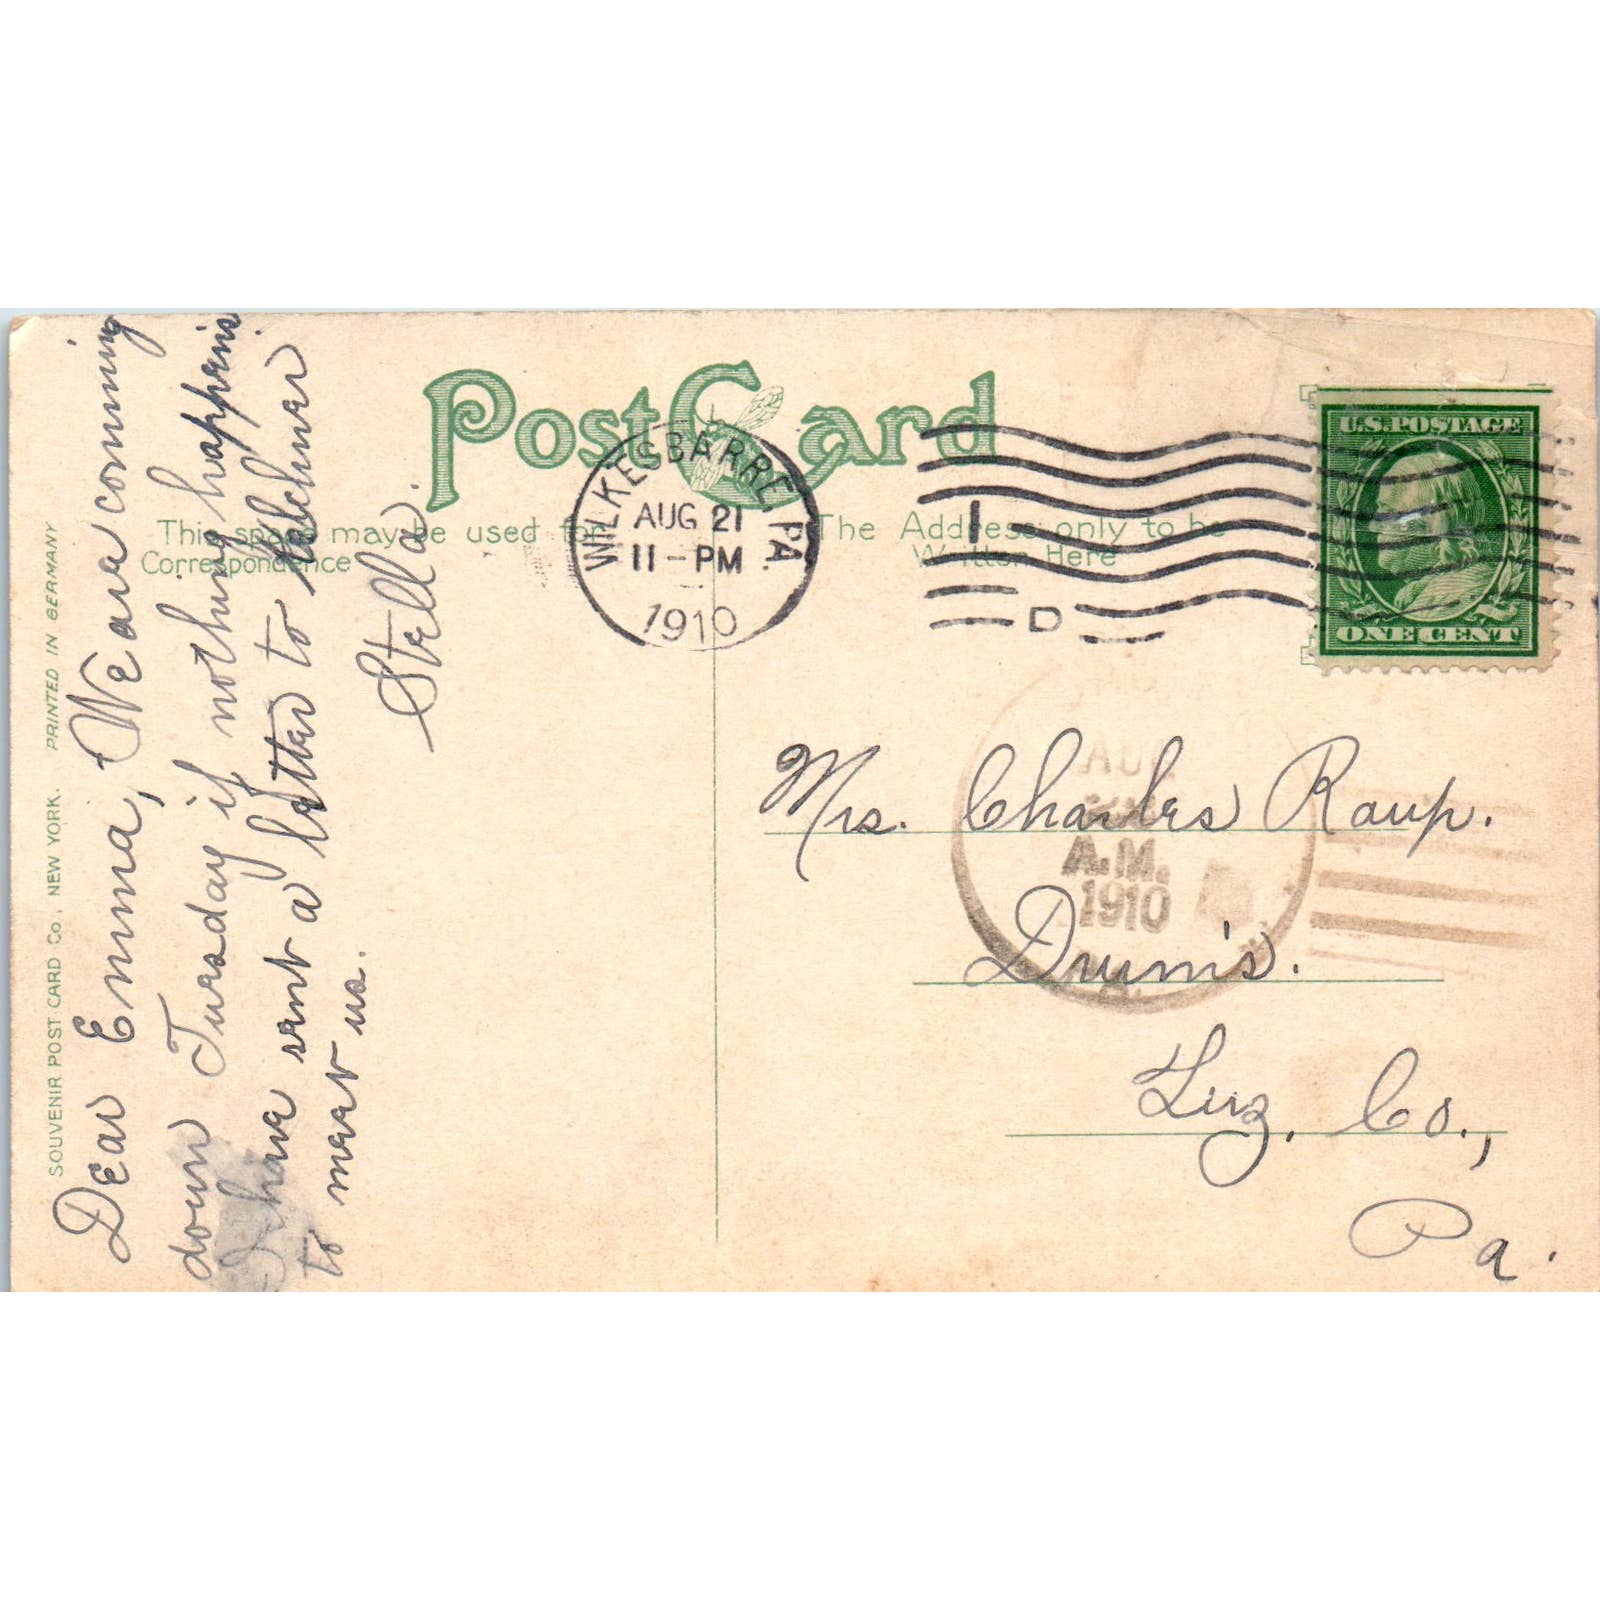 Post Card
This space may be used for
Correspondence
The Address only to be
Written Here
WILKES BARRE, PA.
AUG 21
11-PM
1910
1
D
U.S. POSTAGE
ONE CENT
AUG
A.M.
1910
Mrs. Charles Raup.
Drum's.
Luz. Co.,
Pa.
Dear Emma, We are coming
down Tuesday if nothing happens.
I have sent a letter to
to meet us.
Stella.
SOUVENIR POST CARD Co., NEW YORK. PRINTED IN GERMANY